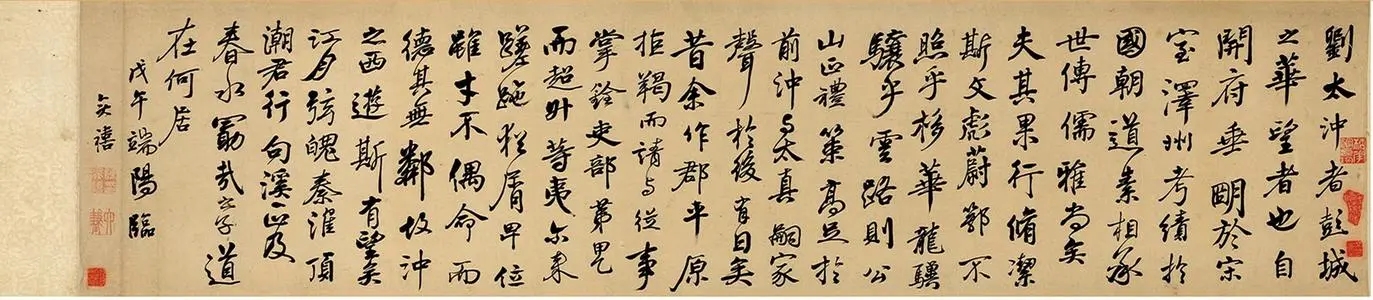 劉太沖者彭城
之華望者也自
開府垂明於宋
室澤州考績於
國朝道素相承
世傳儒雅尚矣
夫其果行脩潔
斯文彪蔚鄂不
照乎栘華龍驥
驤乎雲路則公
山正禮策高足於
前沖与太真嗣家
聲於後有日矣
昔余作郡平原
拒羯而請与從事
掌銓吏部第甲
而超升等夷尓来
蹉跎猶屑卑位
雖才不偶命而
德其無鄰故沖
之西遊斯有望矣
江月弦魄秦淮頂
潮君行句溪正及
春水勖哉之子道
在何居
戊午端陽臨
奕禧